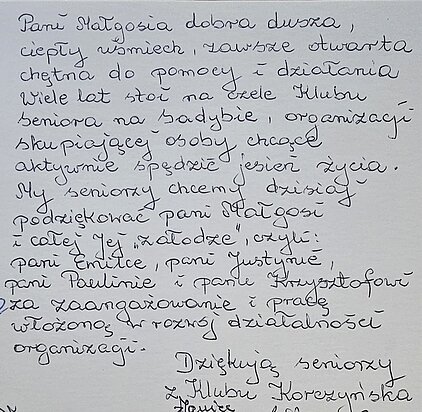 Pani Małgosia dobra dusza,
ciepły uśmiech, zawsze otwarta
chętna do pomocy i działania
Wiele lat stoi na czele Klubu
seniora na Sadybie, organizacji
skupiającej osoby chcące
aktywnie spędzić jesień życia.
My seniorzy chcemy dzisiaj
podziękować pani Małgosi
i całej Jej „załodze", czyli:
pani Emilce, pani Justynie,
pani Paulinie i panu Krzysztofowi
za zaangażowanie i pracę
włożoną w rozwój działalności
organizacji.
Dziękują seniorzy
z Klubu Korczyńska